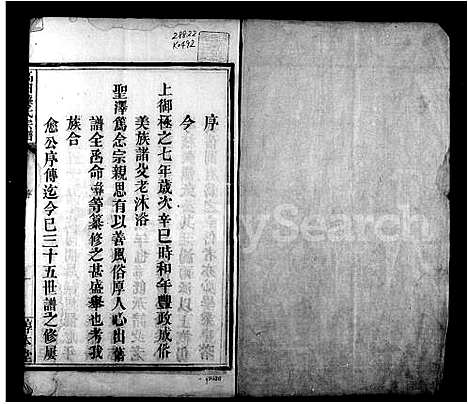 序
今
上御極之七年歲次辛巳時和年豐政成俗
美族諸父老沐浴
聖澤篤念宗親思有以善風俗厚人心出舊
譜全函命等纂修之甚盛舉也考我
族合
愈公序傳迄今已三十五世譜之修屢
28822
K0492
MySearch